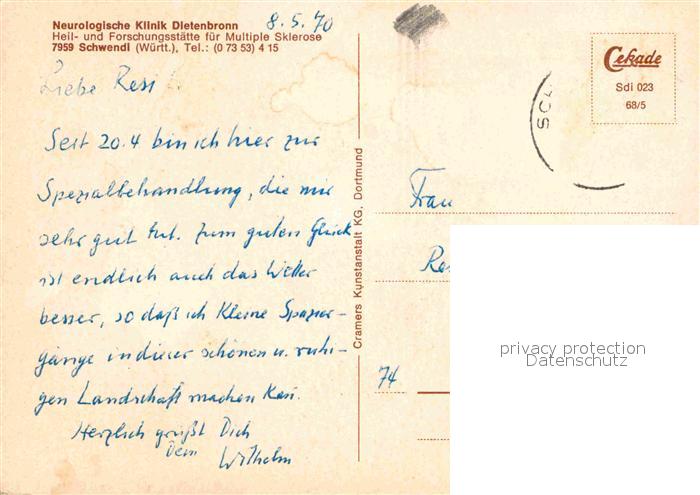 Neurologische Klinik Dietenbronn
Heil- und Forschungsstätte für Multiple Sklerose
7959 Schwendi (Württ.), Tel.: (0 73 53) 4 15
8.5.70
Liebe Resi!
Seit 20.4 bin ich hier zur
Spezialbehandlung, die mir
sehr gut tut. Zum guten Glück
ist endlich auch das Wetter
besser, so daß ich kleine Spazier-
gänge in dieser schönen u. ruhi-
gen Landschaft machen kan.
Herzlich grüßt Dich
Dein
Wilhelm
Cramers Kunstanstalt KG, Dortmund
Cekade
Sdi 023
68/5
SC
Frau
Re
74
privacy protection
Datenschutz